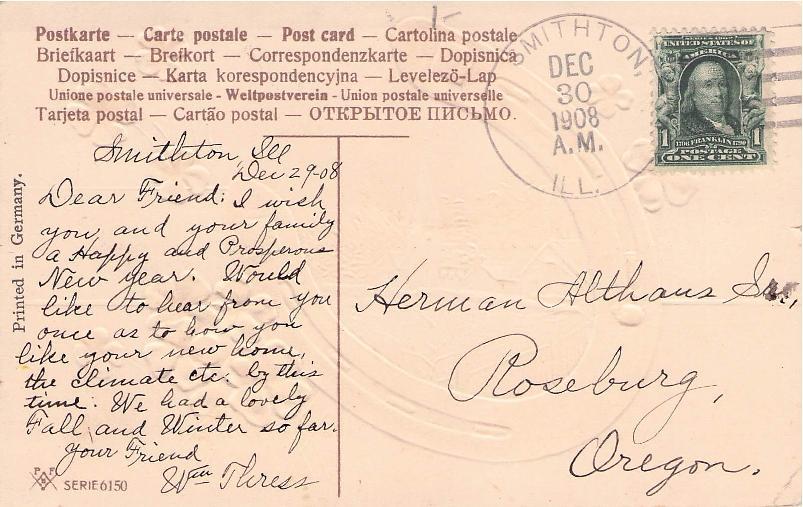 Postkarte — Carte postale — Post card — Cartolina postale
Briefkaart — Brefkort — Correspondenzkarte — Dopisnica
Dopisnice — Karta korespondencyjna — Levelező-Lap
Unione postale universale - Weltpostverein - Union postale universelle
Tarjeta postal — Cartão postal — ОТКРЫТОЕ ПИСЬМО.
SMITHTON,
DEC
30
1908
A.M.
ILL.
UNITED STATES OF
1 1706 FRANKLIN 1790 1
POSTAGE
ONE CENT
Smithton Ill
Dec 29-08
Dear Friend: I wish
you and your family
a Happy and Prosperous
New Year. Would
like to hear from you
once as to how you
like your new home,
the climate etc. by this
time. We had a lovely
Fall and Winter so far.
Your Friend
Wm Thress
Herman Althaus Sr.,
Roseburg,
Oregon.
Printed in Germany.
P F
SERIE 6150